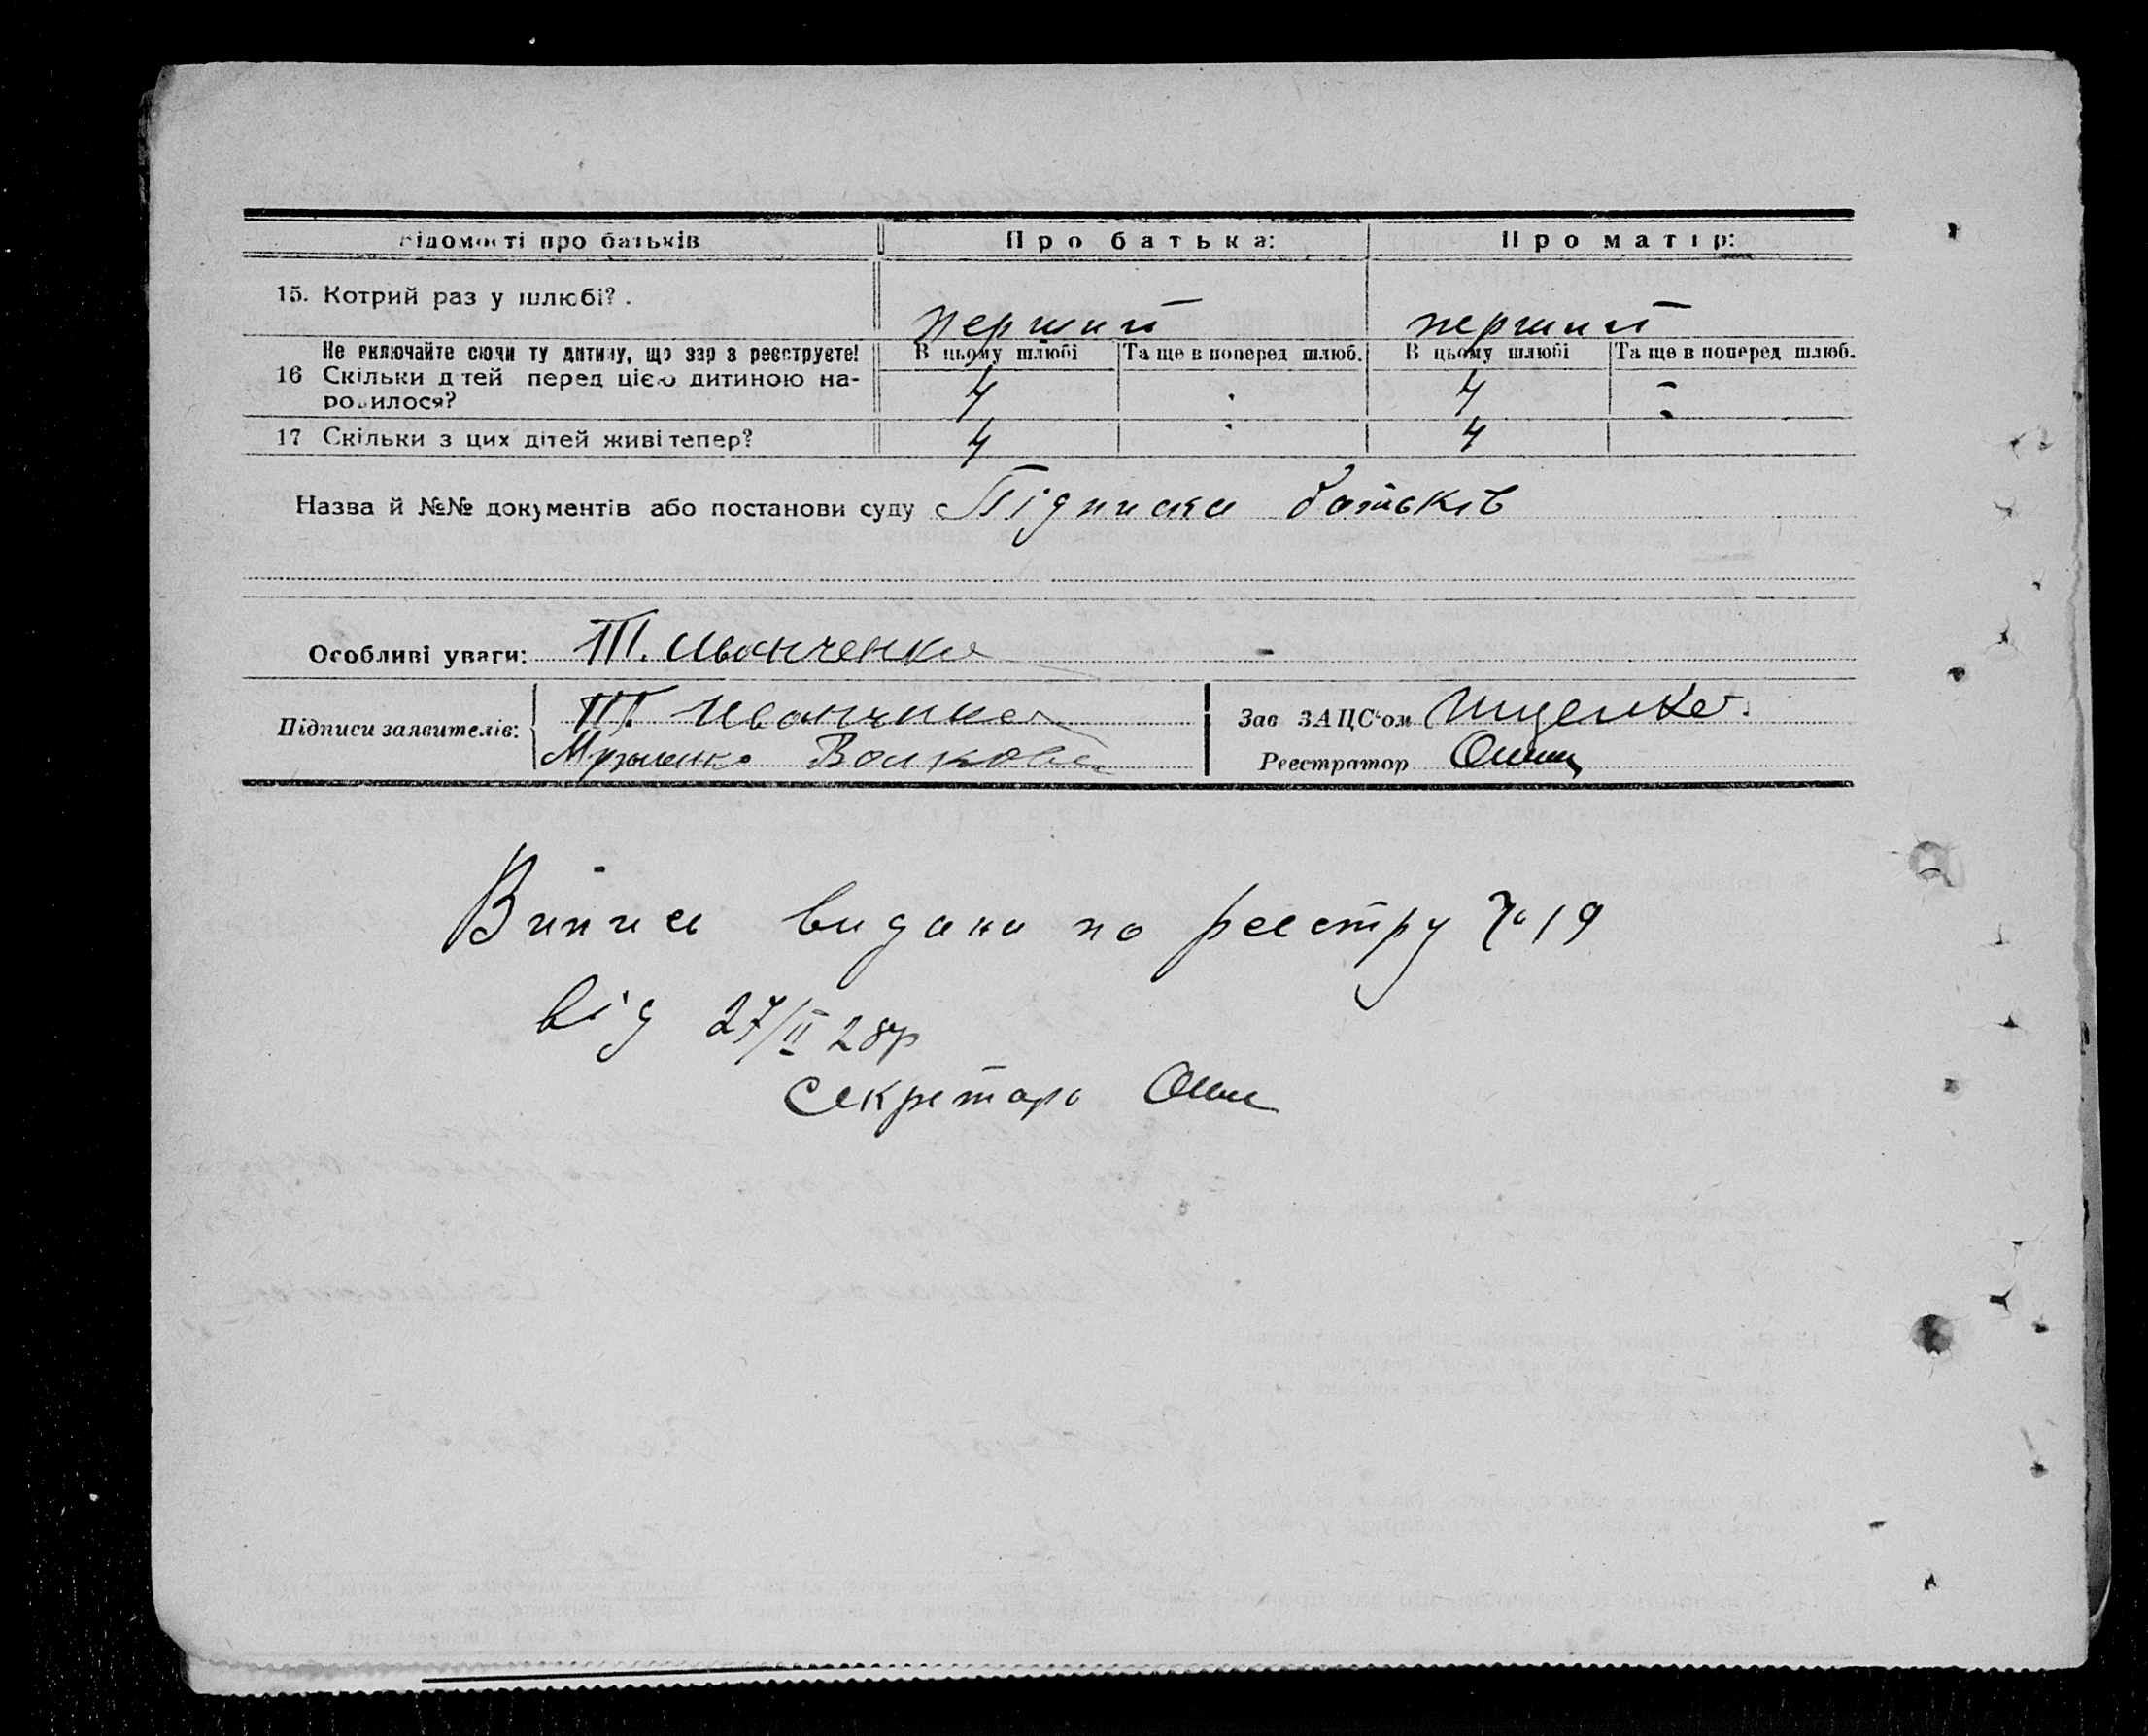 Відомості про батьків Про батька: Про матір:
15. Котрий раз у шлюбі? . перший перший
Не включайте сюди ту дитину, що зараз реєструєте! В цьому шлюбі Та ще в поперед шлюб. В цьому шлюбі Та ще в поперед шлюб.
16 Скільки дітей перед цією дитиною на-
родилося? 4 4 -
17 Скільки з цих дітей живі тепер? 4 4
Назва й №№ документів або постанови суду Підписка батьків
Особливі уваги: Т. Иванченко
Підписи заявителів: Т. Зав ЗАЦС'ом Ищенко
Реєстратор
Випись видана по реєстру № 19
від 27/II 28р
Секретарь